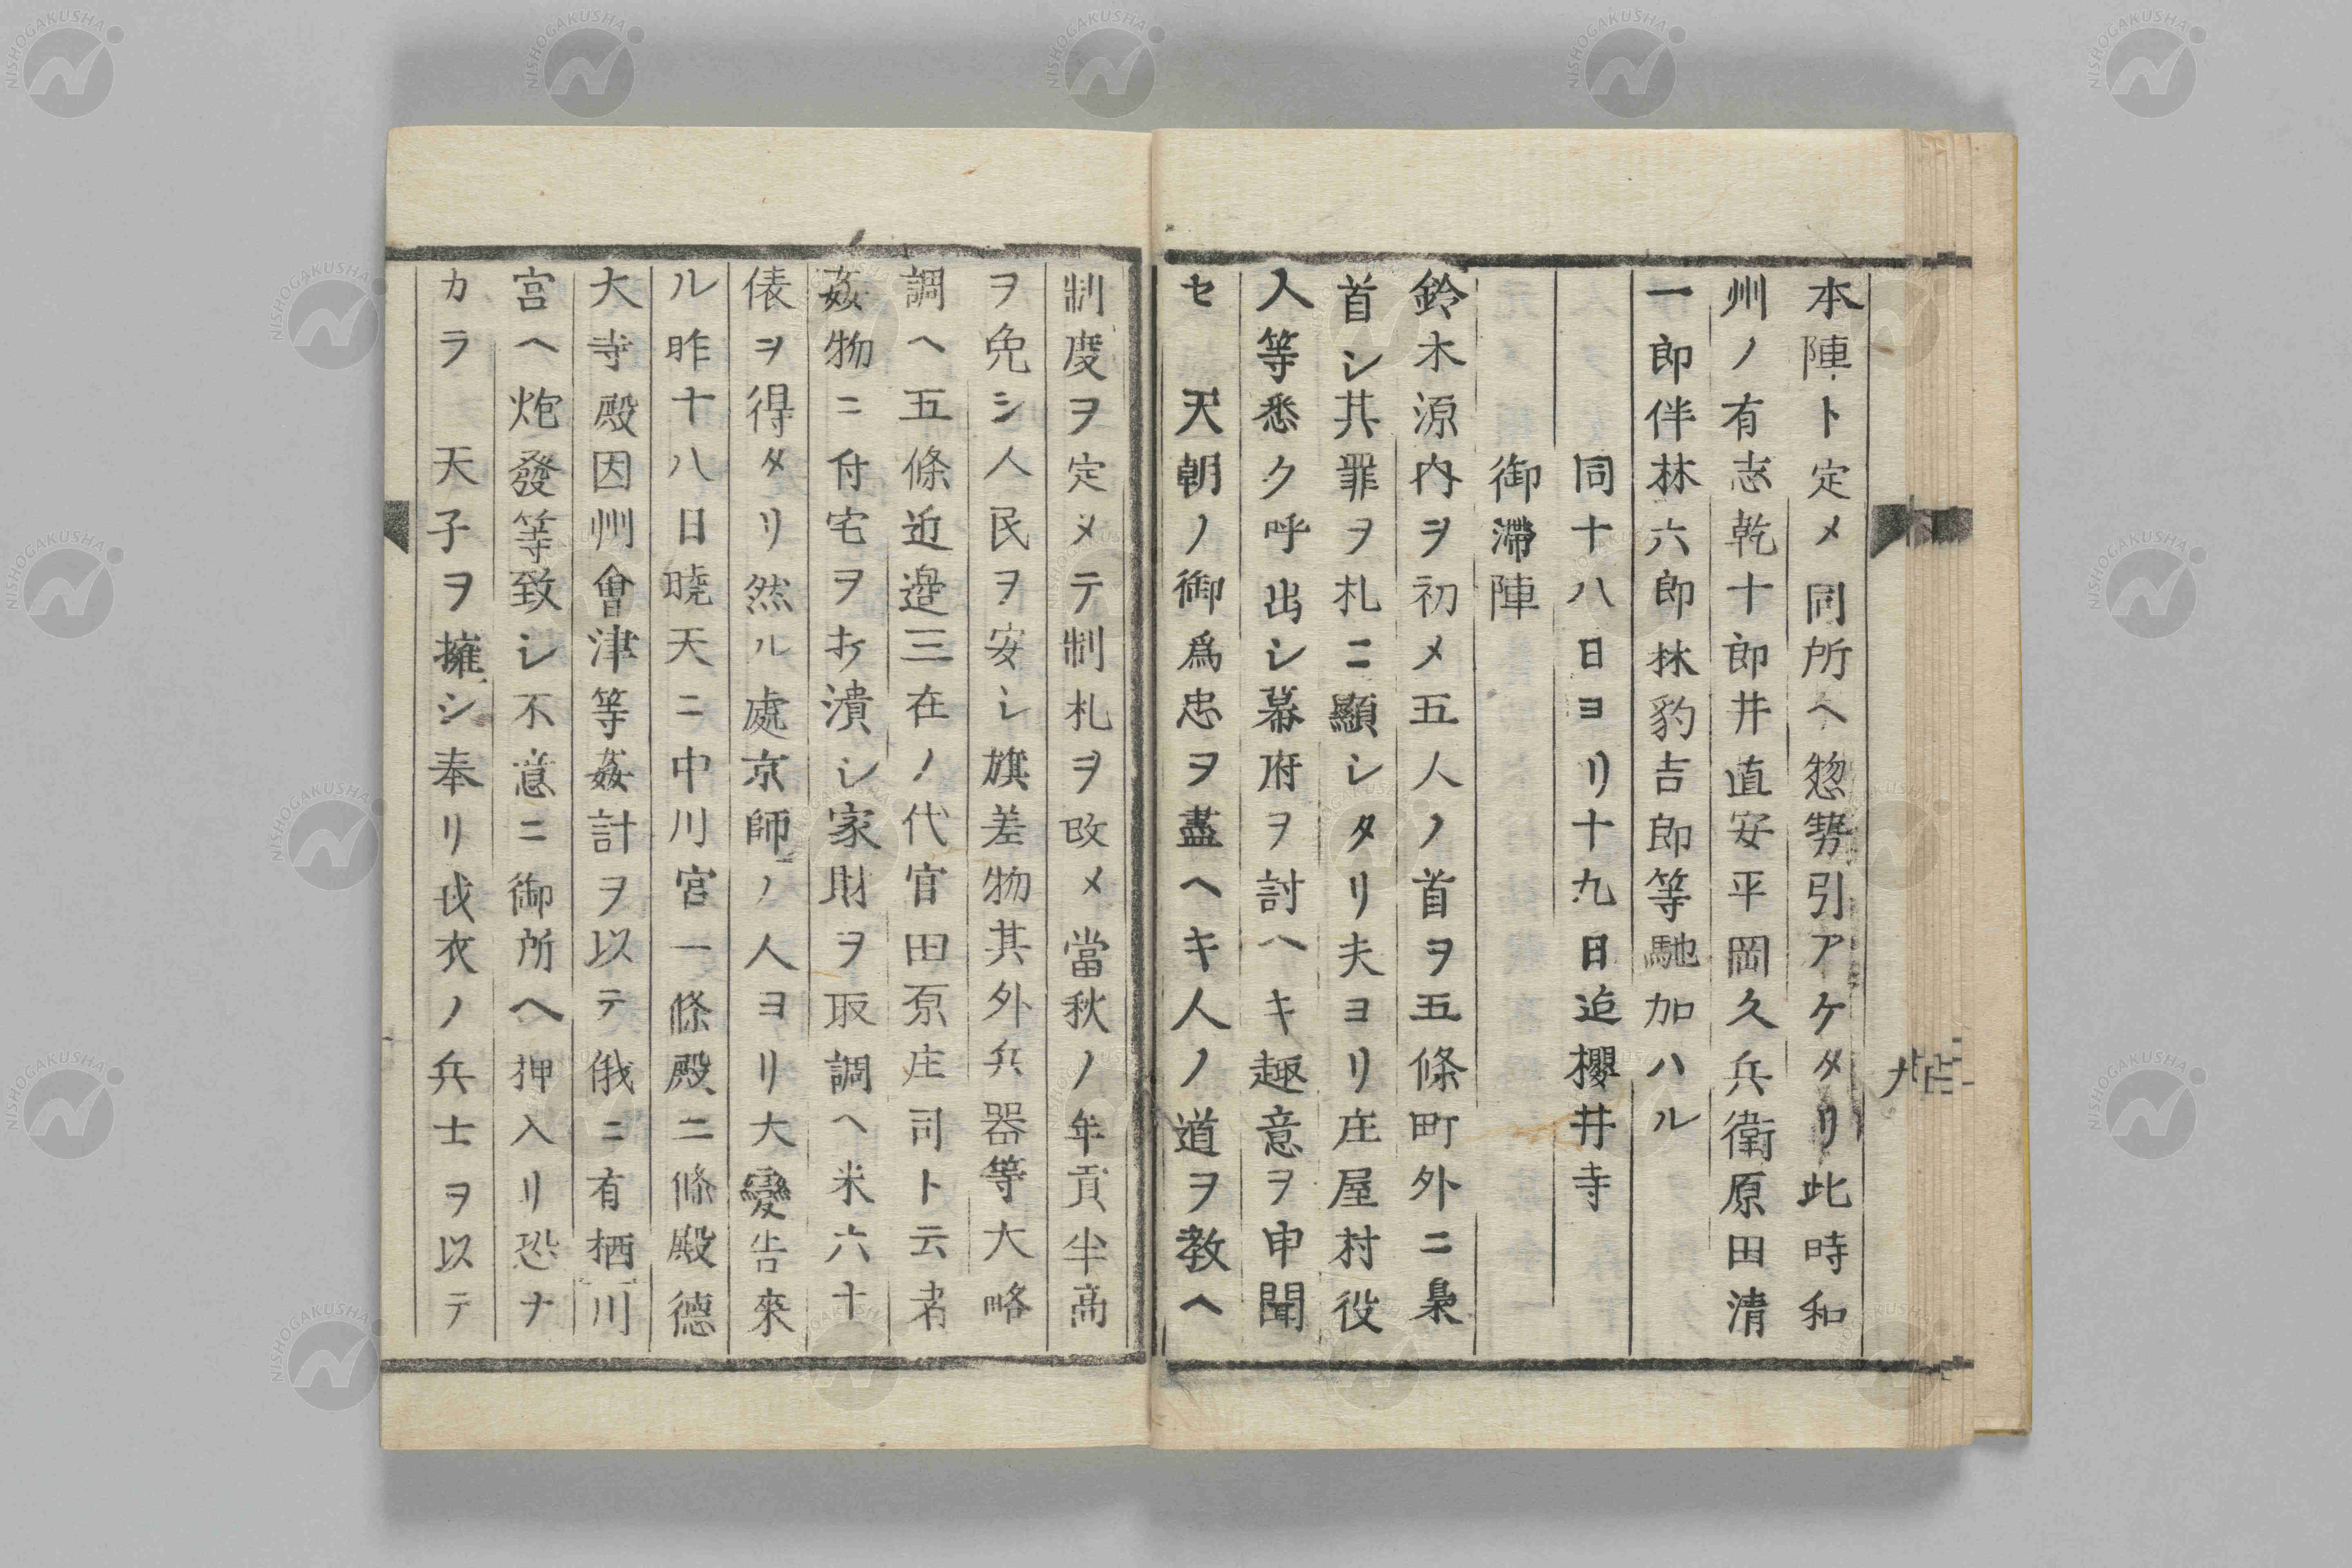 本陣ト定メ同所ヘ惣勢引アケタリ此時和
州ノ有志乾十郎井直安平岡久兵衛原田清
一郎伴林六郎林豹吉郎等馳加ハル
同十八日ヨリ十九日迠櫻井寺
御滯陣
鈴木源内ヲ初メ五人ノ首ヲ五條町外ニ梟
首シ其罪ヲ札ニ顯シタリ夫ヨリ庄屋村役
人等悉ク呼出シ幕府ヲ討ヘキ趣意ヲ申聞
セ 天朝ノ御爲忠ヲ盡ヘキ人ノ道ヲ教ヘ
制度ヲ定メテ制札ヲ改メ當秋ノ年貢半高
ヲ免シ人民ヲ安シ旗差物其外兵器等大略
調ヘ五條近邉三在ノ代官田原庄司ト云者
姦物ニ付宅ヲ打潰シ家財ヲ取調ヘ米六十
俵ヲ得タリ然ル處京師ノ人ヨリ大變告來
ル昨十八日曉天ニ中川宮一條殿二條殿德
大寺殿因州會津等姦計ヲ以テ俄ニ有栖川
宮ヘ炮發等致シ不意ニ御所ヘ押入リ恐ナ
カラ 天子ヲ擁シ奉リ戎衣ノ兵士ヲ以テ
NISHOGAKUSHA